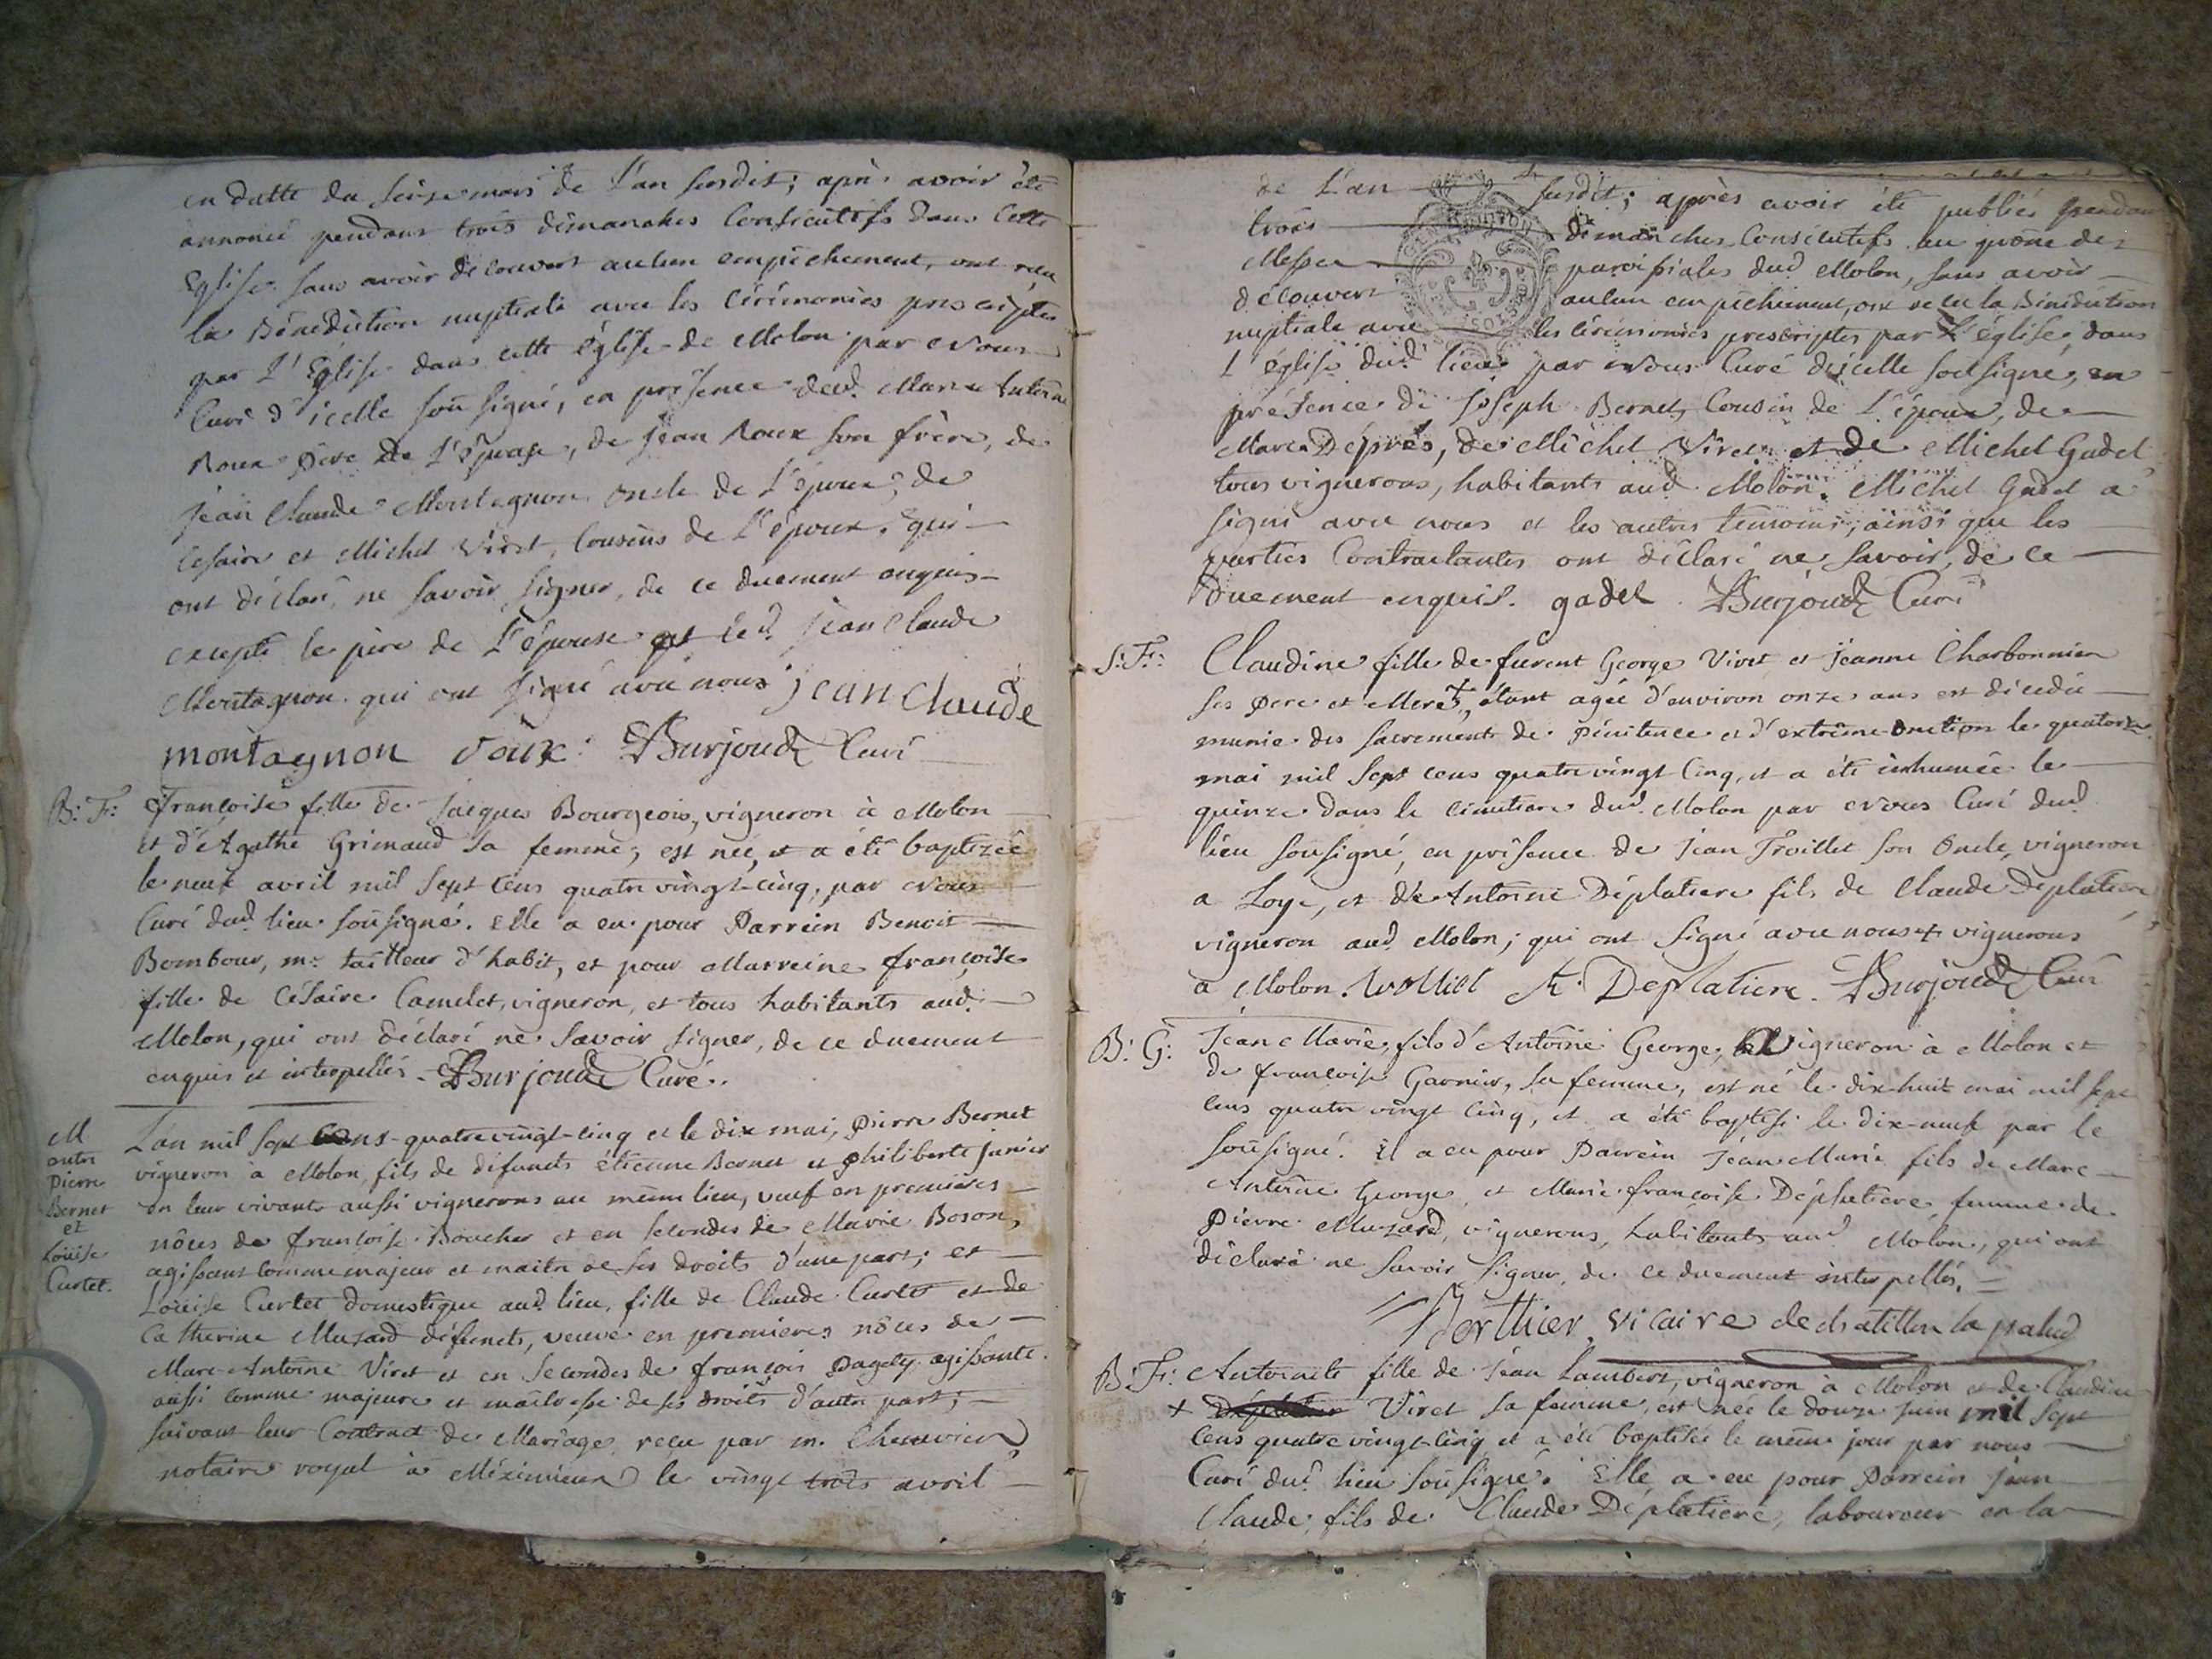 en datte du seize mars de L'an susdit; après avoir été
annoncé pendant trois dimanches Consécutifs dans Cette
Eglise sans avoir découvert aucun empêchement, ont reçu
la Bénédiction nuptiale avec les Cérémonies prescriptes
par L'Eglise dans cette église de Molon par Nous
Curé d'icelle sousigné, en présence dud. Marc Antoine
Roux père de L'épouse, de Jean Roux son frère, de
Jean Claude Montagnon oncle de L'époux, de
Césaire et Michel Viret, Cousins de L'époux, qui
ont déclaré ne savoir signer, de ce duement enquis
excepté le père de L'épouse et led. Jean Claude
Montagnon qui ont signé avec nous jean Claude
montagnon Roux. Burjoud Curé
B: F: Françoise fille de Jacques Bourgeois, vigneron à Molon
et d'Agathe Grimaud sa femme, est née, et a été baptizée
le neuf avril mil sept cens quatre vingt-cinq, par Nous
Curé dud. lieu sousigné. Elle a eu pour Parrein Benoit
Bombour, m.e tailleur d'habit, et pour Marreine françoise
fille de Césaire Camelet, vigneron, et tous habitants aud.
Molon, qui ont déclaré ne savoir signer, de ce duement
enquis et interpellés. Burjoud Curé.
M
entre
Pierre
Bernet
et
Loüise
Curtet.
L'an mil sept cens-quatrevingt-cinq et le dix mai, Pierre Bernet
vigneron à Molon, fils de défuncts étienne Bernet et Philiberte Janier
en leur vivant aussi vignerons au même lieu, veuf en premières
nôces de françoise Boucher et en secondes de Marie Boson,
agissant comme majeur et maitre de ses droits d'une part; et
Loüise Curtet domestique aud. lieu, fille de Claude Curtet et de
Catherine Muzard défuncts, veuve en premieres nôces de
Marc-Antoine Viret et en secondes de françois Pagely agissante
aussi comme majeure et maîtresse de ses droits d'autre part;
suivant leur Contract de Mariage reçu par m.
notaire royal à Méximieux le vingt trois avril
de L'an susdit; après avoir été publiés pendant
trois dimanches Consécutifs au prône des
Messes paroissiales dud Molon, sans avoir
découvert aucun empêchement, ont reçu la Bénédiction
nuptiale avec les cérémonies prescriptes par L'église, dans
L'église dud. lieu par Nous Curé d'icelle sousigné, en
présence de Joseph Bernet, Cousin de L'époux, de
Marc Déprés, de Michel Viret et de Michel Gadel,
tous vignerons, habitants aud. Molon. Michel Gadel a
signé avec nous et les autres temoins, ainsi que les
parties Contractantes ont déclaré ne savoir, de ce
duement enquis. gadel Burjoud Curé
S: F: Claudine fille de furent George Viret et Jeanne Charbonnier
ses Père et Mere +, étant agée d'environ onze ans est décédée
munie des sacrements de Pénitence et d'extrême-onction le quatorze
mai mil sept cens quatre vingt cinq, et a été inhumée le
quinze dans le cimetiere dud. Molon par Nous Curé dud.
lieu sousigné, en présence de Jean Troillet son Oncle, vigneron
a Loye, et de Antoine Déplatiere fils de Claude Déplatiere
vigneron aud. Molon; qui ont signé avec nous + vignerons
a Molon. A. Deplatiere. Burjoud Curé
B: G: Jean Marie, fils d'Antoine George, Vigneron à Molon et
de françoise Garnier, sa femme, est né le dix-huit mai mil sept
cens quatre vingt cinq, et a été baptisé le dix-neuf par le
sousigné. Il a eu pour Parrein Jean Marie fils de Marc
Antoine George et Marie françoise Déplatiere femme de
Pierre Muzard, vignerons, habitants aud Molon, qui ont
déclaré ne savoir signer, de ce duement interpellés.
Berthier vicaire de chatillon la palud
B: F: Antoinette fille de Jean Lambert, vigneron à Molon et de Claudine
+ Viret sa femme, est née le douze juin mil sept
cens quatre vingt-cinq et a été baptisée le même jour par nous
Curé dud. lieu sousigné. Elle a eu pour Parrein Jean
Claude, fils de Claude Déplatiere, laboureur en la